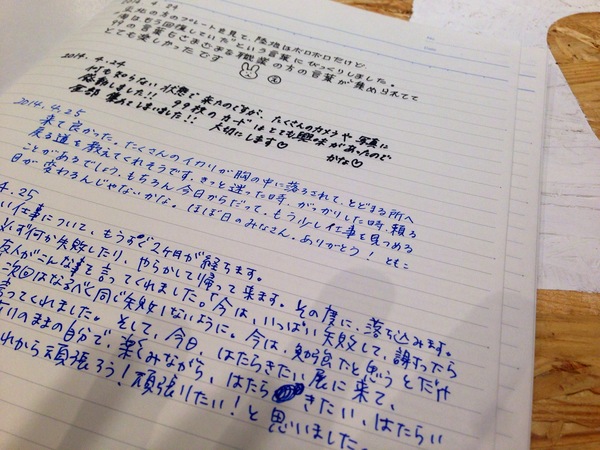 2014. 4. 24
東北の方のプレートを見て、陸地はボロボロだけど
海はもう回復していた"という言葉にびっくりしました。
竹の言葉もさまざまな職業の方の言葉が集められてて
とても楽しかったです
2014. 4. 24
何も知らない状態で来たのですが、たくさんのカメラや写真に
感動しました!! 99枚のカードはとても興味があったので
全部 集めてしまいました!! 大切にします♡
かな♡
2014. 4. 25
来て良かった。たくさんのイカリが胸の中に落ろされて、とどまる所へ
戻る道を教えてくれそうです。きっと迷った時、がっかりした時、頼る
ことがあるでしょう。もちろん今日からだって、もう少し仕事を見つめる
目が変わるんじゃないかな。ほぼ日のみなさん、ありがとう! ともこ
4. 25
い仕事について、もうすぐ2ヶ月が経ちます。
必ず何か失敗したり、やらかして帰って来ます。その度に、落ち込みます。
友人がこんな事を言ってくれました。「今は、いっぱい失敗して、謝ったら
次回はなるべく同じ失敗しないように。今は、勉強だと思うとだけ
言ってくれました。そして、今日 はたらきたい展に来て、
りのままの自分で、楽しみながら、はたらきたい、はたらい
れから頑張ろう!頑張りたい!と思いました。